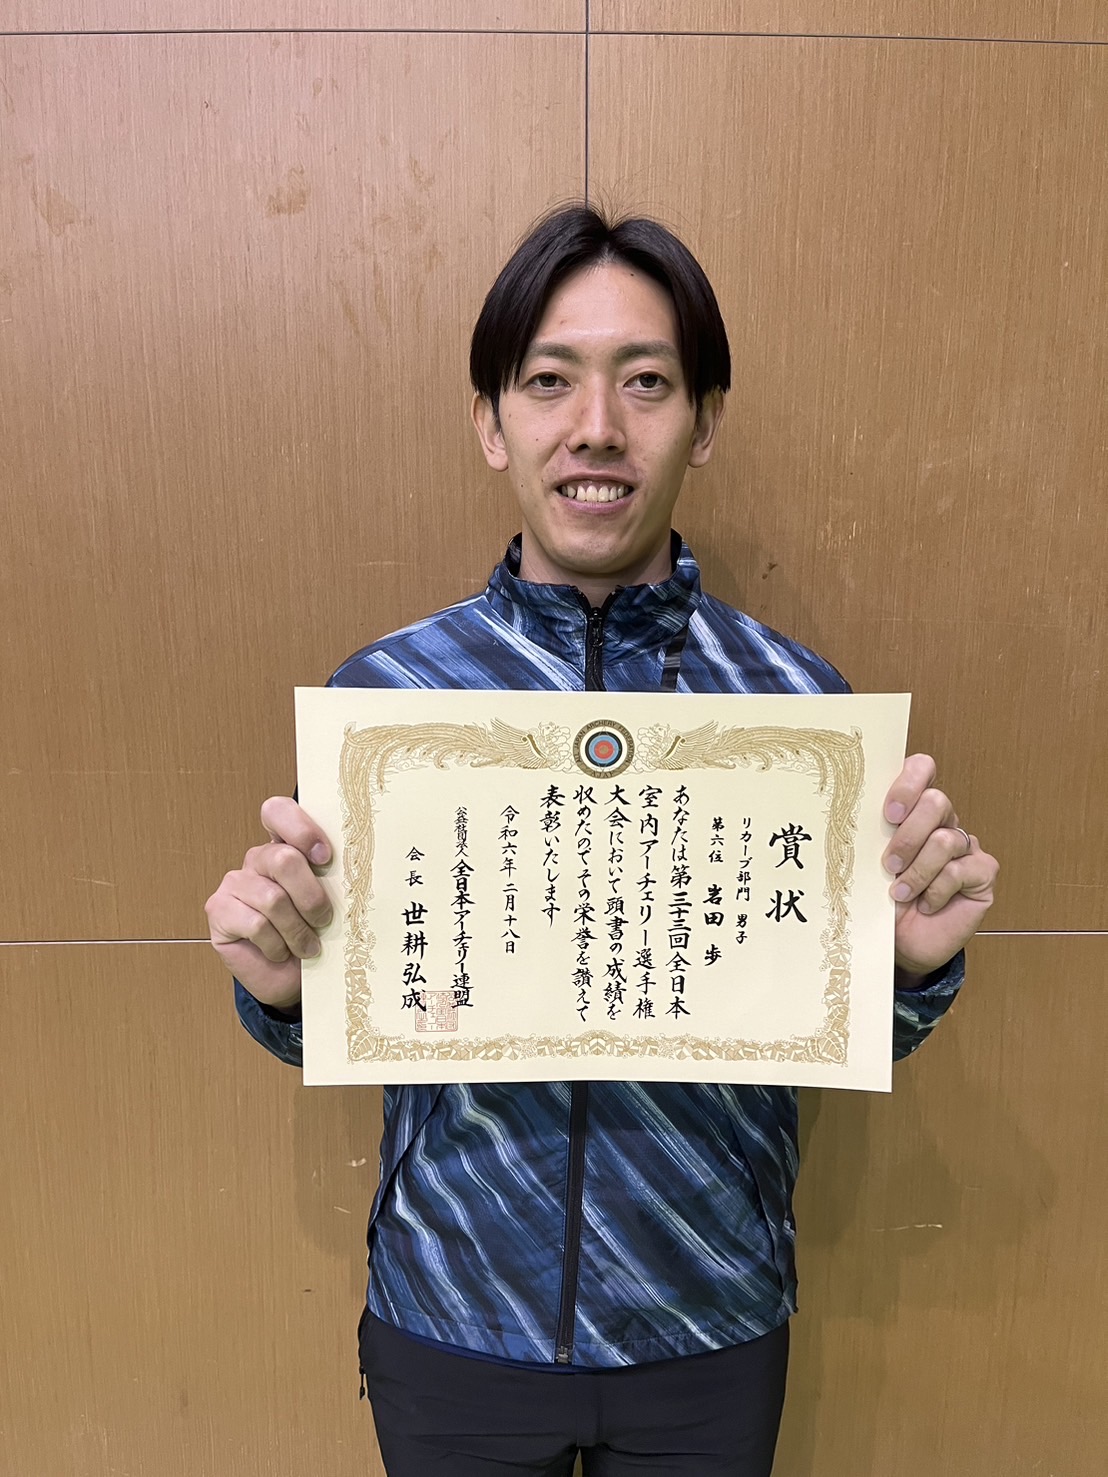 賞状
リカーブ部門 男子
第六位 岩田 歩
あなたは第三十三回全日本
室内アーチェリー選手権
大会において頭書の成績を
収めたのでその栄誉を讃えて
表彰いたします
令和六年二月十八日
公益社団法人 全日本アーチェリー連盟
会長 世耕弘成
ALL JAPAN ARCHERY FEDERATION
AJAF